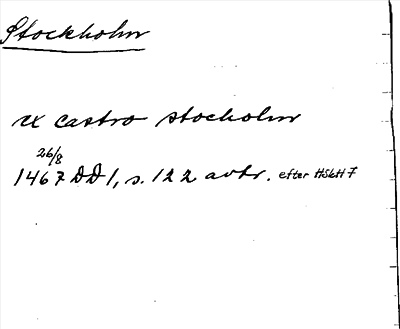 Stockholm
ex castro stocholm
26/8
1467 DD1, s. 122 avtr. efter HSkH 7